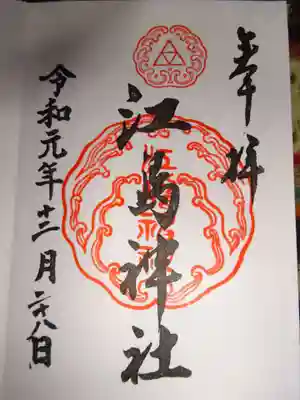 奉拝
江島神社
令和元年十二月二十八日